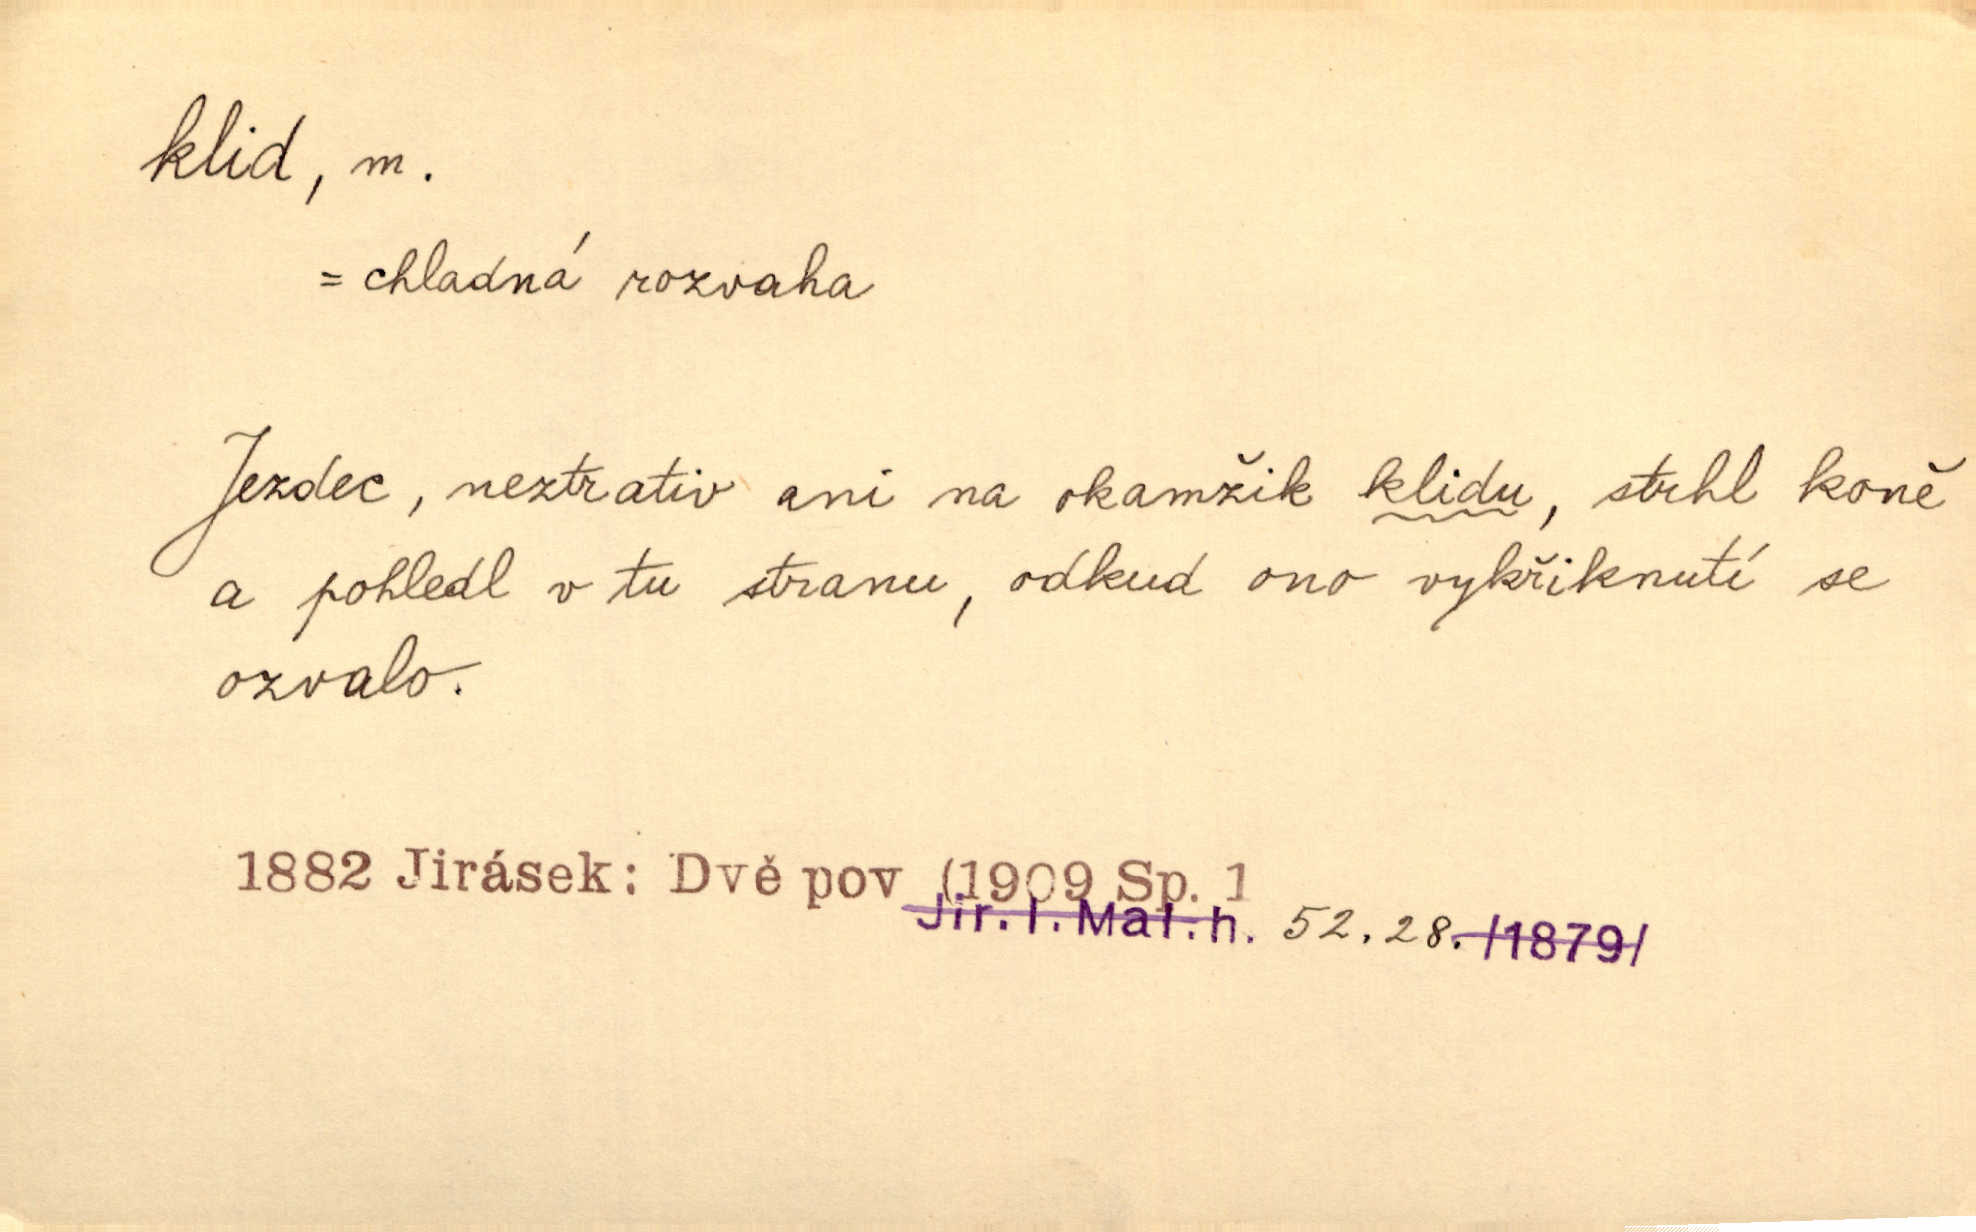 klid, m.
= chladná rozvaha
Jezdec, neztrativ ani na okamžik klidu, strhl koně
a pohledl v tu stranu, odkud ono vykřiknutí se
ozvalo.
1882 Jirásek: Dvě pov (1909 Sp. 1
Jir. I. Mal. h. 52. 28. /1879/